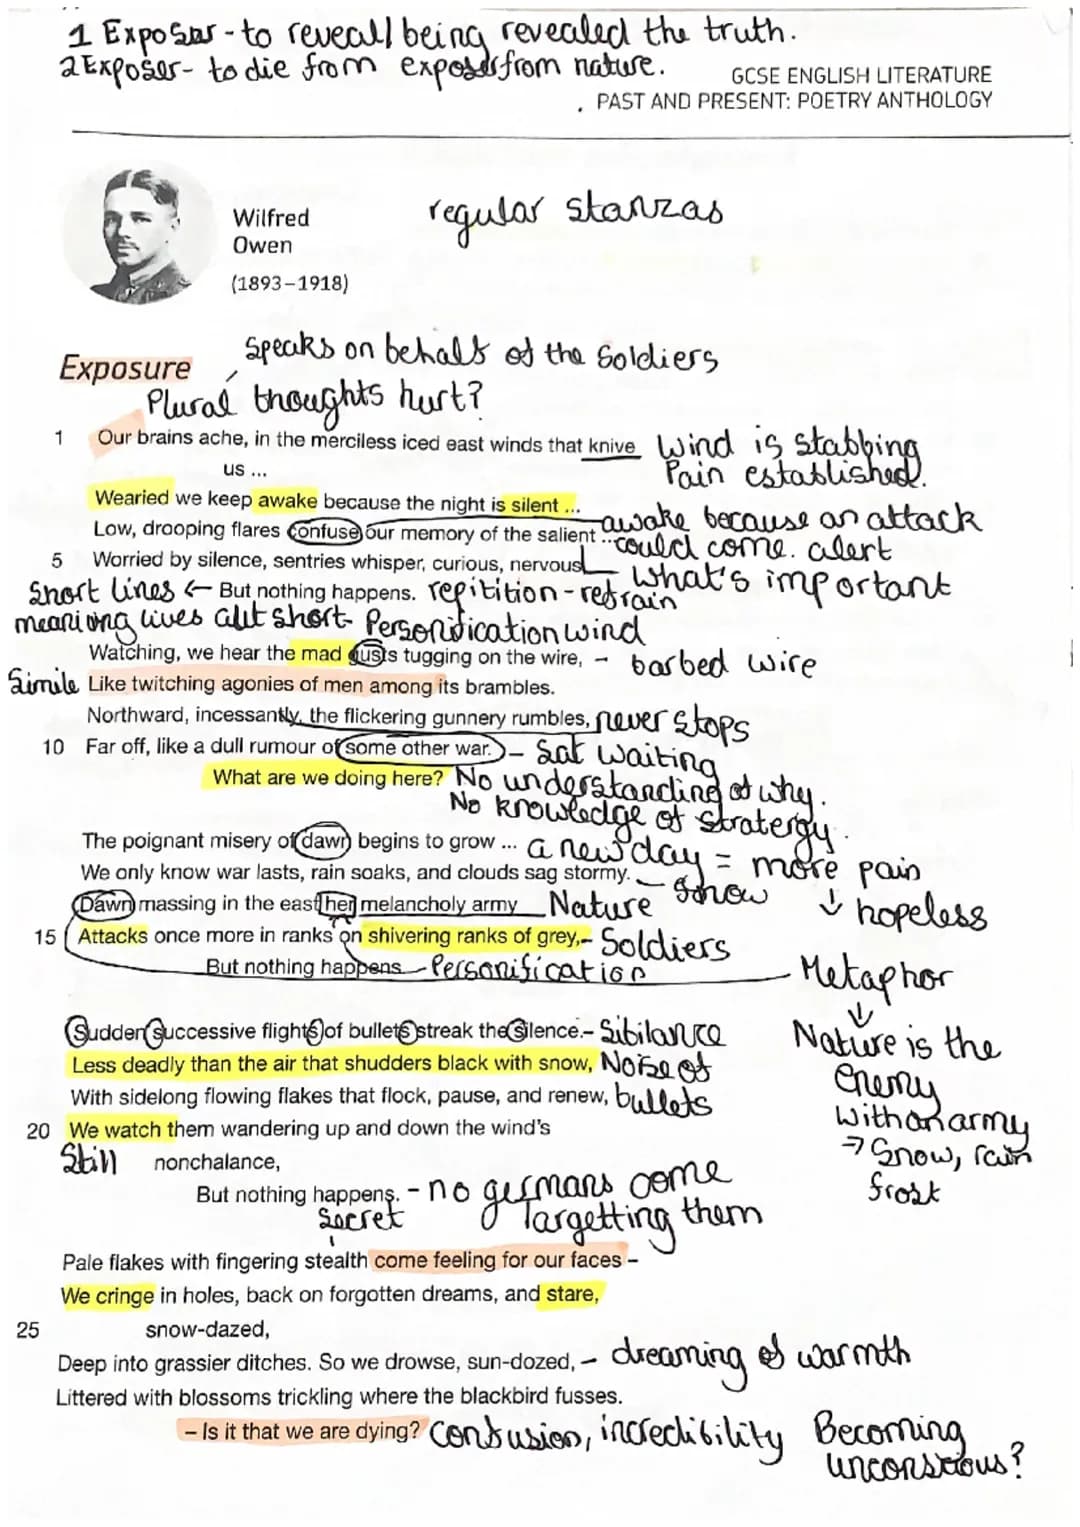 1 Exposur - to reveal/ being revealed the truth.
2 Exposer - to die from exposer from nature.
GCSE ENGLISH LITERATURE
PAST AND PRESENT: POETRY ANTHOLOGY
Wilfred
Owen
(1893–1918)
regular stanzas
Speaks on behalf of the Soldiers
Exposure
Plural thoughts hurt?
1 Our brains ache, in the merciless iced east winds that knive Wind is stabbing
us ... Pain established.
Wearied we keep awake because the night is silent ...
Low, drooping flares confuse our memory of the salient ... awake because an attack
could come. alert
5 Worried by silence, sentries whisper, curious, nervous, What's important
Short lines ← But nothing happens. repitition - refrain
meaning lives cut short Personification wind
Watching, we hear the mad gusts tugging on the wire, - barbed wire
Simile Like twitching agonies of men among its brambles.
Northward, incessantly, the flickering gunnery rumbles, never stops
10 Far off, like a dull rumour of some other war. - Sat waiting
What are we doing here? No understanding of why.
No knowledge of stratergy.
The poignant misery of dawn begins to grow ... a new day = more pain
We only know war lasts, rain soaks, and clouds sag stormy. - Snow ↓ hopeless
Dawn massing in the east her melancholy army Nature
15 Attacks once more in ranks on shivering ranks of grey, - Soldiers
But nothing happens. Personification Metaphor
↓
Nature is the
enemy
with an army
→ Snow, rain
frost
Sudden successive flights of bullets streak the silence. - Sibilance
Less deadly than the air that shudders black with snow, Noise of
With sidelong flowing flakes that flock, pause, and renew, bullets
20 We watch them wandering up and down the wind's
Still nonchalance,
But nothing happens. - no germans come
Secret Targetting them
Pale flakes with fingering stealth come feeling for our faces –
We cringe in holes, back on forgotten dreams, and stare,
25 snow-dazed,
Deep into grassier ditches. So we drowse, sun-dozed, - dreaming of warmth
Littered with blossoms trickling where the blackbird fusses.
– Is it that we are dying? Confusion, incredibility Becoming
unconstious?